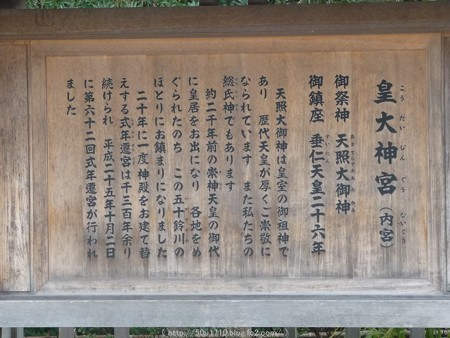 皇大神宮（内宮）
こうたいじんぐう ないくう
御祭神 天照大御神
あまてらすおおみかみ
御鎮座 垂仁天皇二十六年
すいにん
天照大御神は皇室の御祖神で
あり 歴代天皇が厚くご崇敬に
なられています また私たちの
総氏神でもあります
約二千年前の崇神天皇の御代
に皇居をお出になり 各地をめ
ぐられたのち この五十鈴川の
ほとりにお鎮まりになりました
二十年に一度神殿をお建て替
えする式年遷宮は千三百年余り
続けられ 平成二十五年十月二日
に第六十二回式年遷宮が行われ
ました